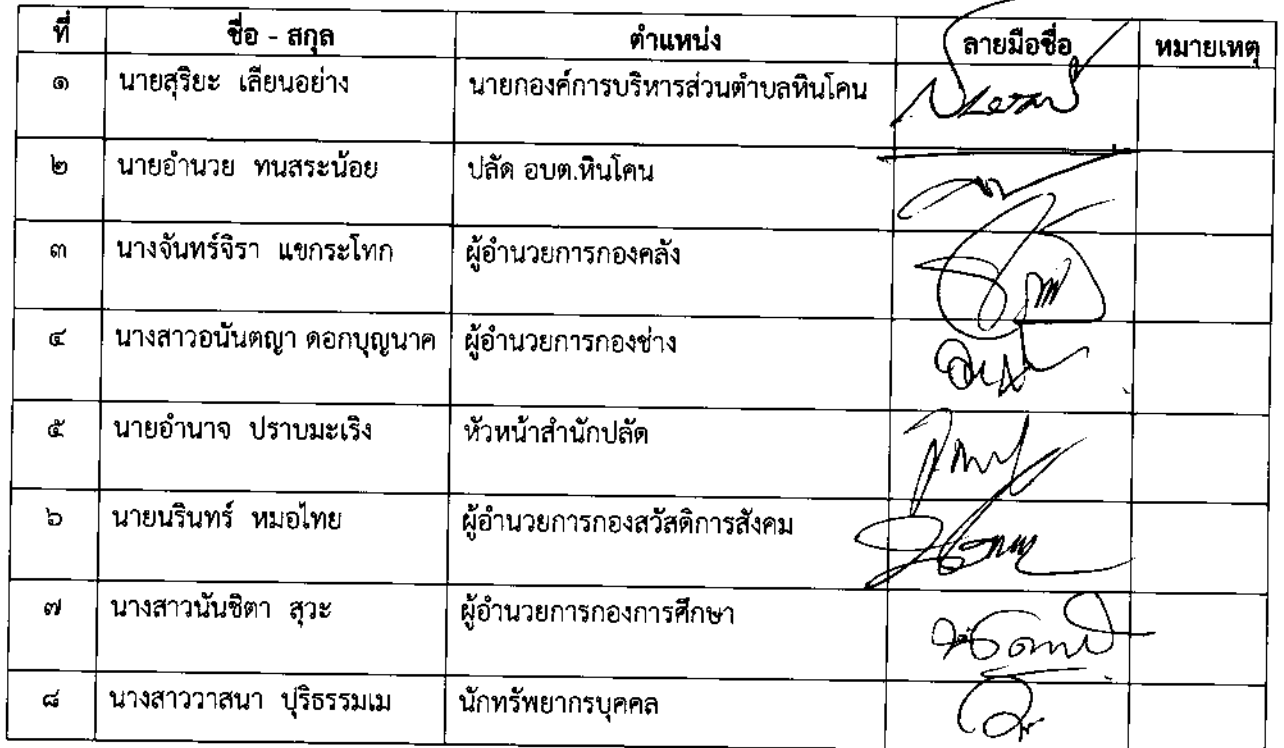 ที่ ชื่อ - สกุล ตำแหน่ง ลายมือชื่อ หมายเหตุ
๑ นายสุริยะ เลียนอย่าง นายกองค์การบริหารส่วนตำบลหินโคน
๒ นายอำนวย ทนสระน้อย ปลัด อบต.หินโคน
๓ นางจันทร์จิรา แขกระโทก ผู้อำนวยการกองคลัง
๔ นางสาวอนันตญา ดอกบุญนาค ผู้อำนวยการกองช่าง
๕ นายอำนาจ ปราบมะเริง หัวหน้าสำนักปลัด
๖ นายนรินทร์ หมอไทย ผู้อำนวยการกองสวัสดิการสังคม
๗ นางสาวนันชิตา สุวะ ผู้อำนวยการกองการศึกษา
๘ นางสาววาสนา ปุริธรรมเม นักทรัพยากรบุคคล